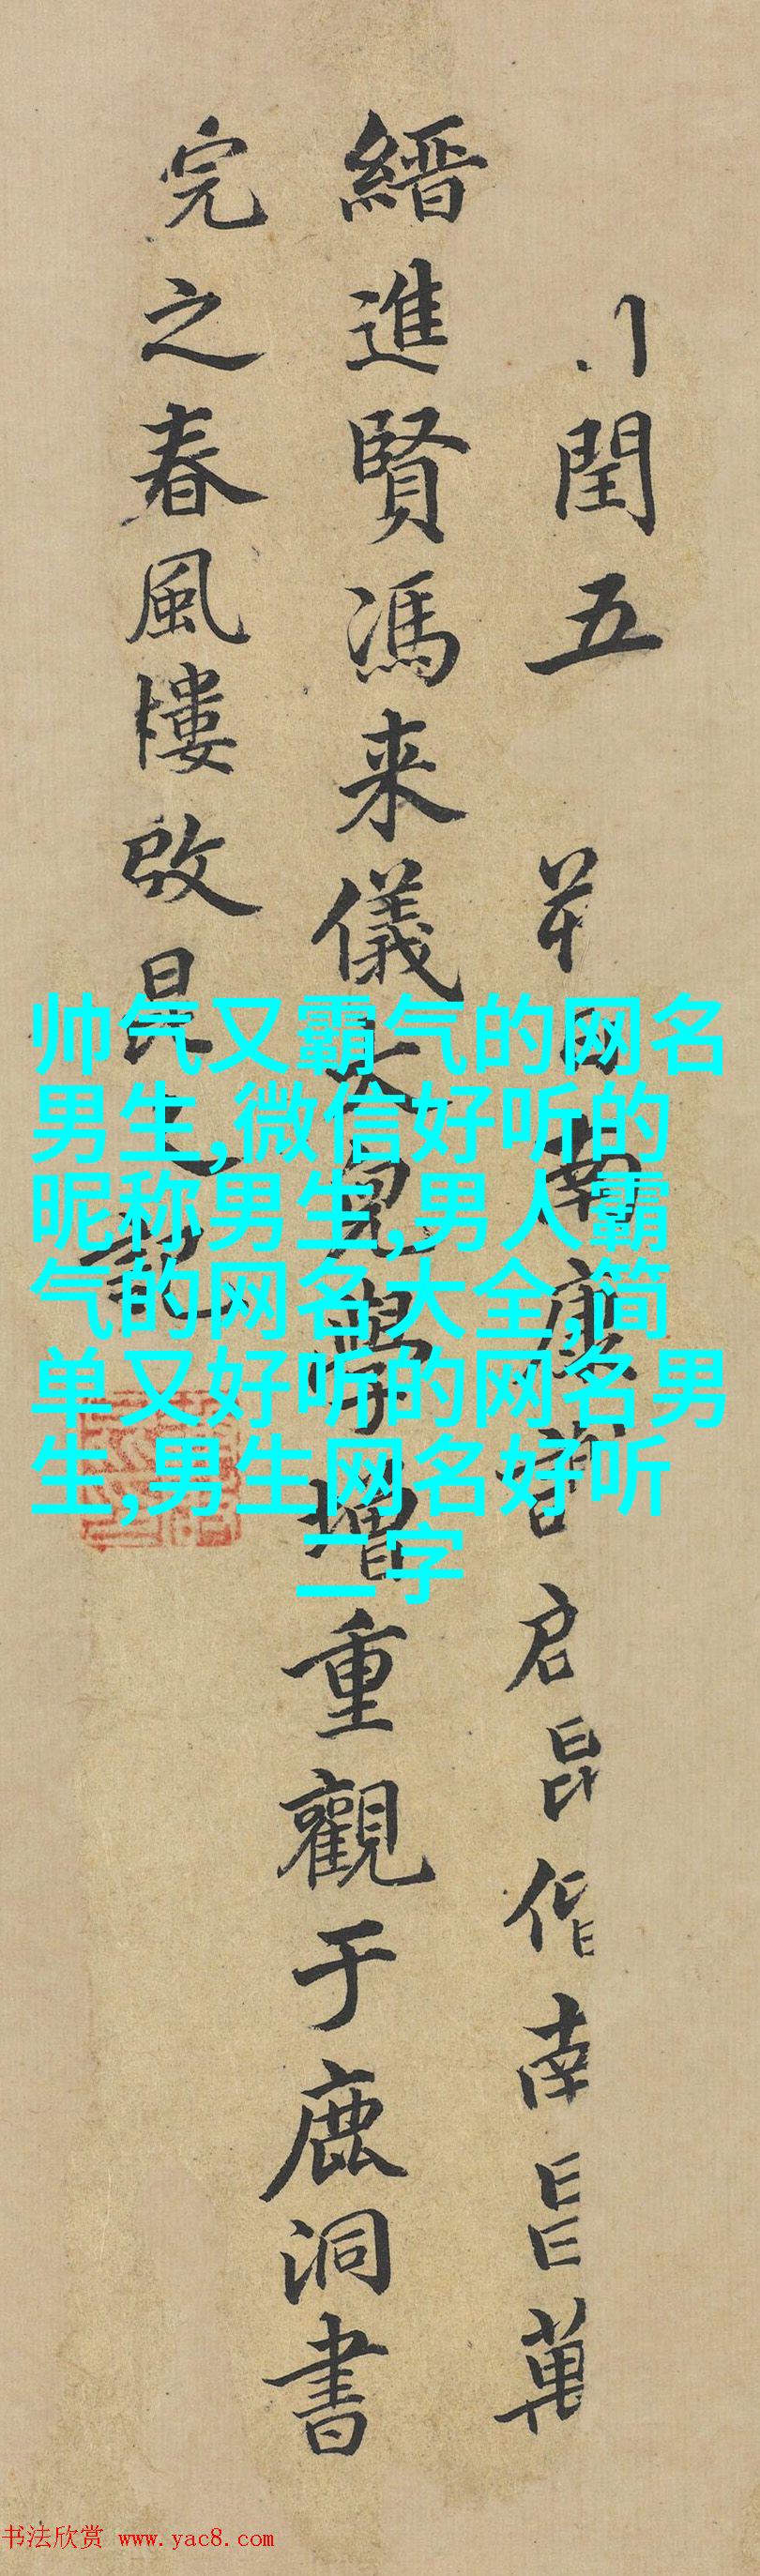 闰五
南康
启昆偕南昌萬
縉進賢馮来儀
增重觀于鹿洞書
完之春風樓啟昆之記
帅气又霸气的网名
男生,微信好听的
昵称男生,男人霸
气的网名大全,简
单又好听的网名男
生,男生网名好听
二字
书法欣赏 www.yac8.com